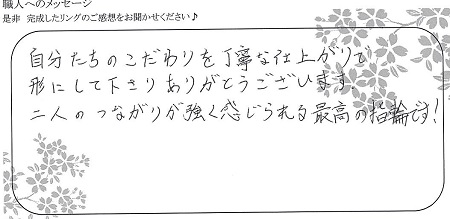 職人へのメッセージ
是非 完成したリングのご感想をお聞かせください♪
自分たちのこだわりを丁寧な仕上がりで
形にして下さりありがとうございます。
二人のつながりが強く感じられる最高の指輪です!